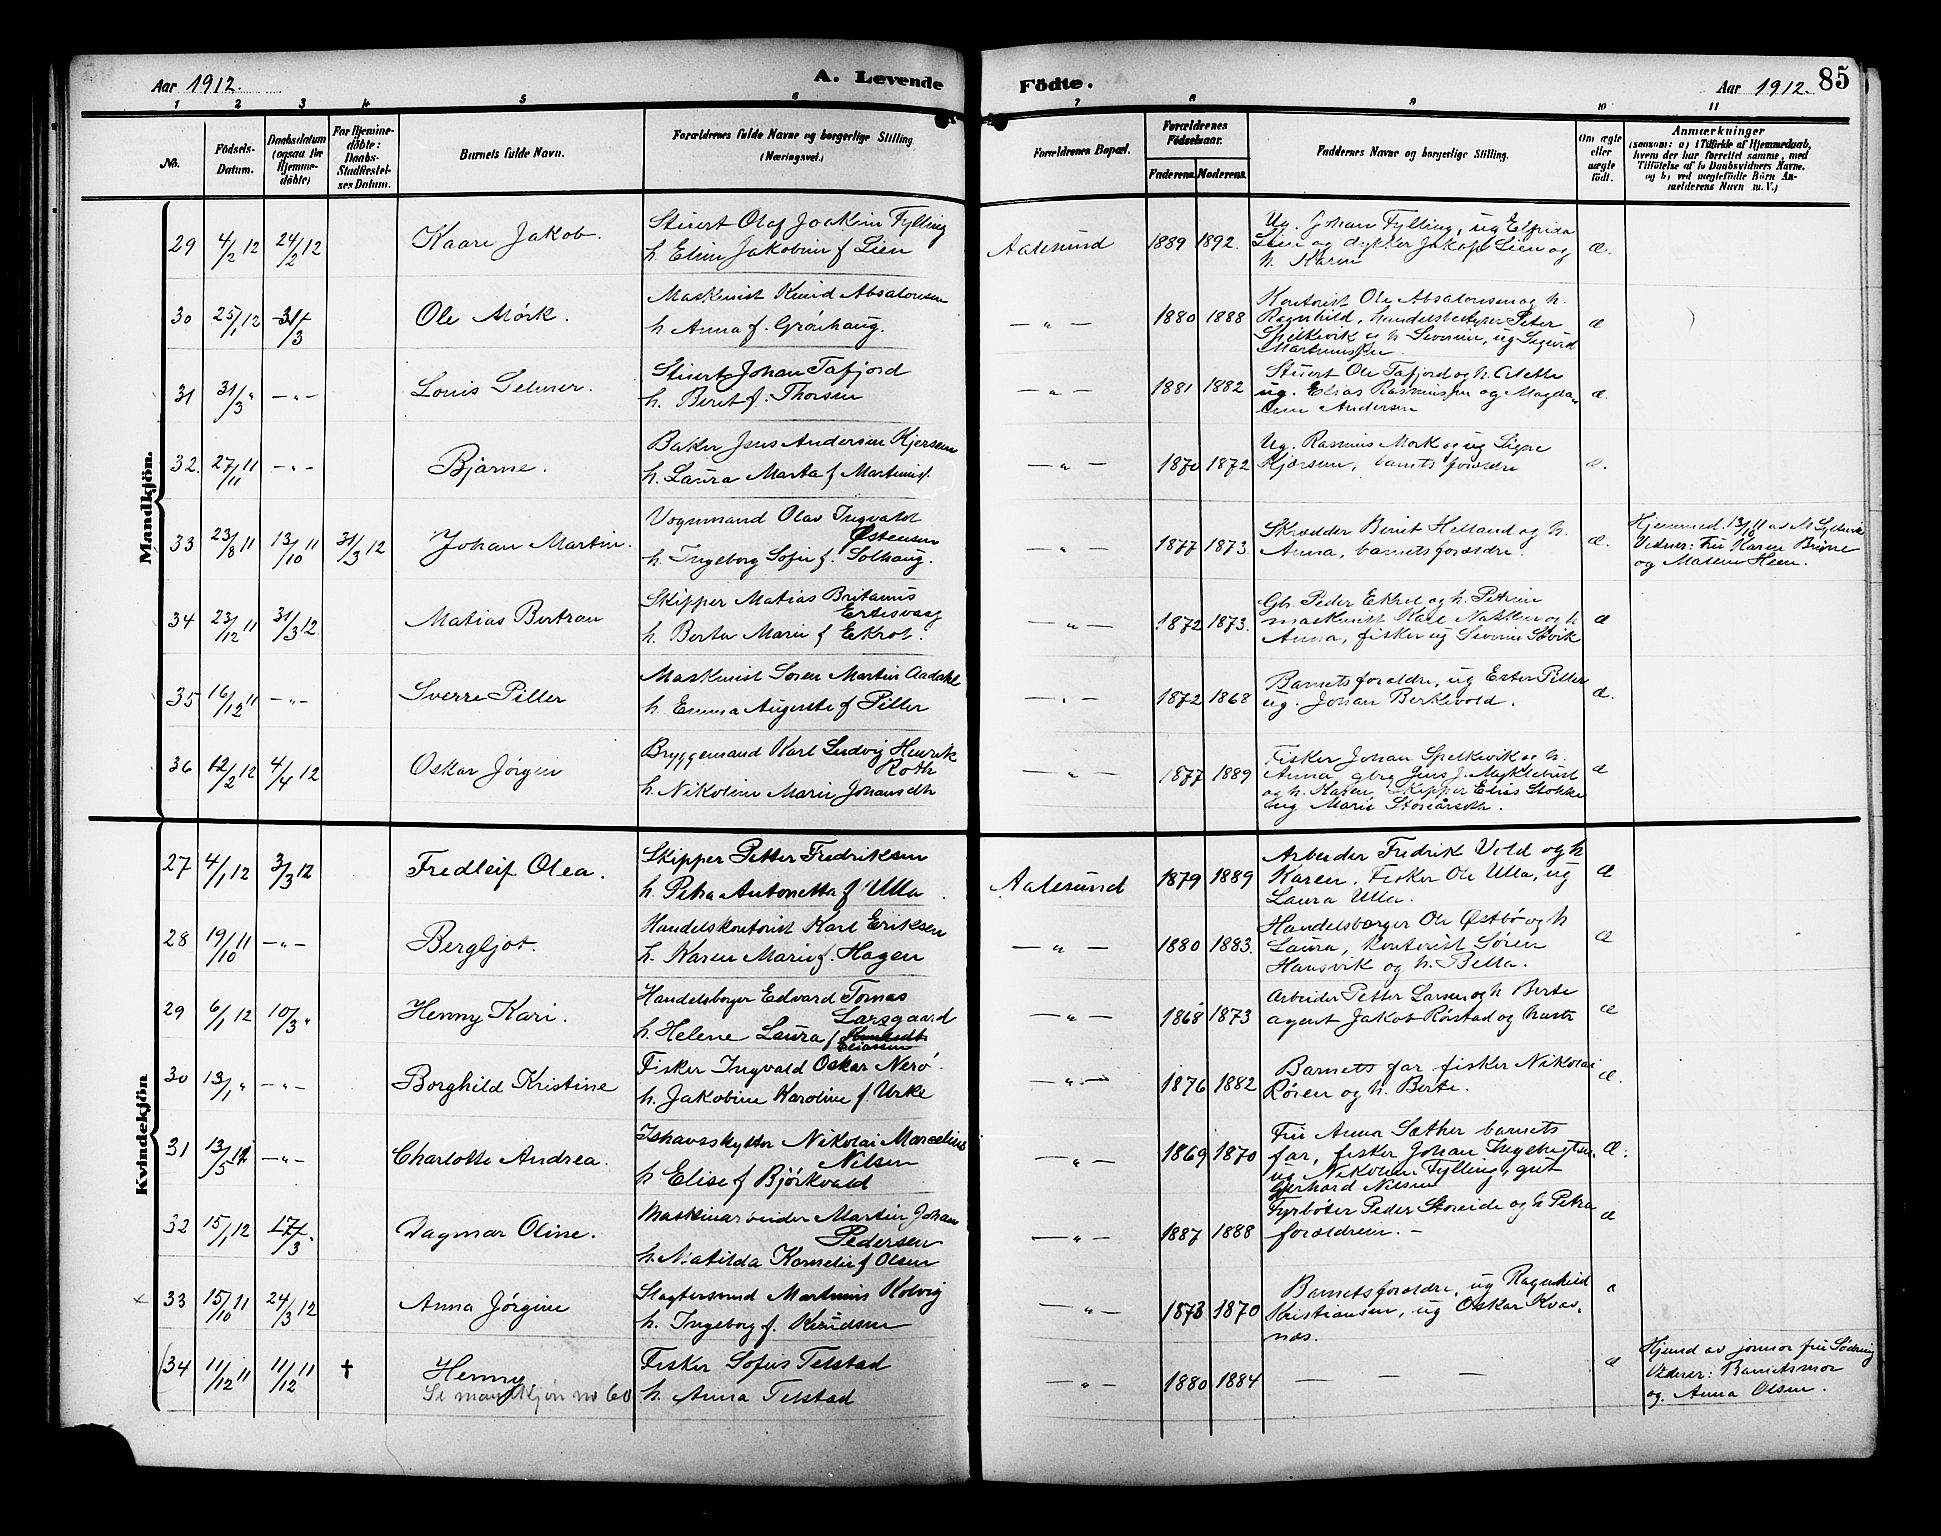 Aar 1912.
A. Levende
Födte.
Aar 1912. 85
1 2 3 4 5 6 7 8 9 10 11
No.
Födsels-
Datum.
Daabsdatum
(ogsaa for
Hjemme-
döbte)
For Hjemme-
döbte:
Daabs-
Stadfæstel-
ses Datum.
Barnets fulde Navn.
Forældrenes fulde Navne og borgerlige Stilling
(Næringsvei.)
Forældrenes Bopæl.
Forældrenes
Födselsaar.
Faderens. Moderens.
Faddernes Navne og borgerlige Stilling.
Om ægte
eller
uægte
födt.
Anmærkninger
(saasom: a) i Tilfælde af Hjemmedaab,
hvem der har forrettet samme, med
Tilföielse af to Daabsvidners Navne.
og b) ved uægtefödte Börn An-
melderens Navn m. V.)
Mandkjön.
29 4/2 12 24/2 12 Kaare Jakob.
Stuert Olaf Joakim Fylling
h. Elin Jakobine f Lien
Aalesund 1889 1892.
Ug. Johan Fylling, ug Elfrida
Lien og dykker Jakob Lien og
h. Karen
æ.
30 25/1 12 31/3 Ole Mörk.
Maskinist Knud Absalonsen
h. Anna f. Grönhaug.
— " — 1880 1888
Kontorist Ole Absalonsen og h.
Ragnhild, handelsbestyrer Peter
Spelkevik og h Severine, ug Sigurd
Martinussen
æ
31 31/3 " — " — Louis Selmer.
Stuert Johan Tafjord
h. Berit f. Thorsen
— " — 1881 1882
Stuert Ole Tafjord og h. Alette
ug. Elias Rasmussen og Magda-
lene Andersen
æ.
32. 27/11 11 — " — Bjarne.
Baker Jens Andersen Kjersem
h. Laura Marta f Martinusd.
— " — 1870 1872
Ug. Rasmus Mork og ug Signe
Kjærsem, barnets forældre
æ.
33 23/8 11 13/10 11 31/3 12 Johan Martin.
Vognmand Olav Ingvald
Østensen
h. Ingeborg Sofie f. Solhaug.
— " — 1877 1873.
Skrædder Bernt Helland og h.
Anna, barnets forældre.
æ.
Hjemmed. 13/10 11 av M. Sylsevik
Vidner: Fru Karen Brune
og Maren Heen.
34 23/12 11 31/3 12. Matias Bertran
Skipper Matias Britanus
Ertesvaag
h. Berta Marie f Ekrol.
— " — 1872 1873.
Gb. Peder Ekrol og h. Petrine
maskinist Karl Nakken og h
Anna, fisker ug Severin Søvik
æ
35 16/12 11 — " — Sverre Piller
Maskinist Sören Martin Aadahl
h. Emma Auguste f Piller
— " — 1872 1868
Barnets forældre, ug Ester Piller
ug. Johan Berkevold.
æ.
36 12/2 12 4/4 12 Oskar Jörgen
Bryggemand Karl Ludvig Henrik
Roth
h. Nikoline Marie Johansdtr
— " — 1877 1889
Fisker Johan Spelkevik og h.
Anna, gbr. Jens J. Myklebust
og h. Karen, Skipper Elias Stokke
ug Marie
æ
Kvindekjön
27 4/1 12 3/3 12 Fredleif Olea.
Skipper Petter Fredriksen
h. Petra Antonetta f Ulla
Aalesund 1879 1889
Arbeider Fredrik Vold og h
Karen. Fisker Ole Ulla, ug
Laura Ulla.
æ
28 19/10 11 — " — Bergljot.
Handelskontorist Karl Eriksen
h. Karen Marie f. Hagen
— " — 1880 1883.
Handelsborger Ole Østbö og h
Laura, kontorist Sören
Hansvik og h. Bella.
æ
29 6/1 12 10/3 " Henny Kari.
Handelsborger Edvard Tomas
Larsgaard
h. Helene Laura f
Eliassen
— " — 1868 1873
Arbeider Petter Larsen og h Berte
agent Jakob Rörstad og hustr
æ
30 13/1 " — " — Borghild Kristine
Fisker Ingvald Oskar Nerö.
h. Jakobine Karoline f. Urke
— " — 1876 1882
Barnets far fisker Nikolai
Røren og h. Berte.
æ.
31 13/5 11 — " — Charlotte Andrea.
Ishavsskytter Nikolai Marcelius
Nilsen
h Elise f Bjørkvald
— " — 1869 1870
Fru Anna Sæther barnets
far, fisker Johan Ingebrigtsen
ug Nikoline Fylling, gut
Gerhard Nilsen
æ.
32 15/1 12 17/3. Dagmar Oline.
Maskinarbeider Martin Johan
Pedersen
h. Matilda Kornelie f Olsen
— " — 1887 1888
Fyrböter Peder Storeide og h Petra
forældrene. —
æ
33 15/10 11 24/3 12 Anna Jörgine
Slagtersvend Martinus Kolvig
h. Ingeborg f. Knudsen
— " — 1873 1870
Barnets forældre, ug Ragnhild
Kristiansen, ug Oskar Kvas-
næs.
æ
(34 11/12 11 11/12 11 † Henny
Se mandkjön no 60
Fisker Sofus Telstad
h. Anna Telstad
— " — 1880 1884 — — —
æ
Hjemd av jormor fru Södring
Vidner: Barnets mor
og Anna Olsen.